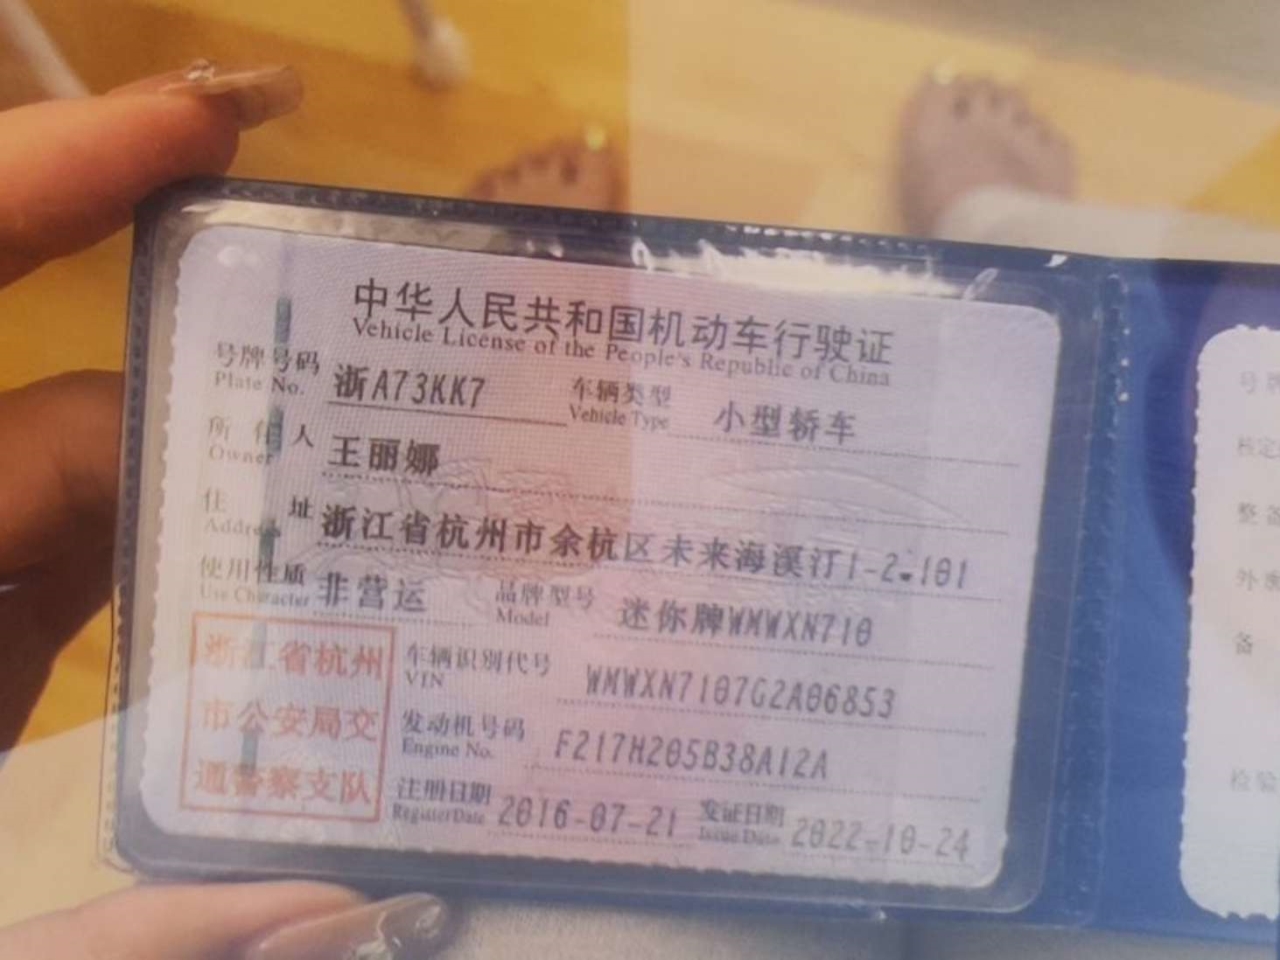 中华人民共和国机动车行驶证
Vehicle License of the People's Republic of China
号牌号码 浙A73KK7 车辆类型 小型轿车
Plate No. Vehicle Type
所有人 王丽娜
Owner
住址 浙江省杭州市余杭区未来海溪汀1-2.101
Address
使用性质 非营运 品牌型号 迷你牌WMWXN710
Use Character Model
浙江省杭州
市公安局交
通警察支队
车辆识别代号 WMWXN7107G2A06853
VIN
发动机号码 F217H205B38A12A
Engine No.
注册日期 2016-07-21 发证日期 2022-10-24
Register Date Issue Date
号牌
核定
整备
外廓
备
检验